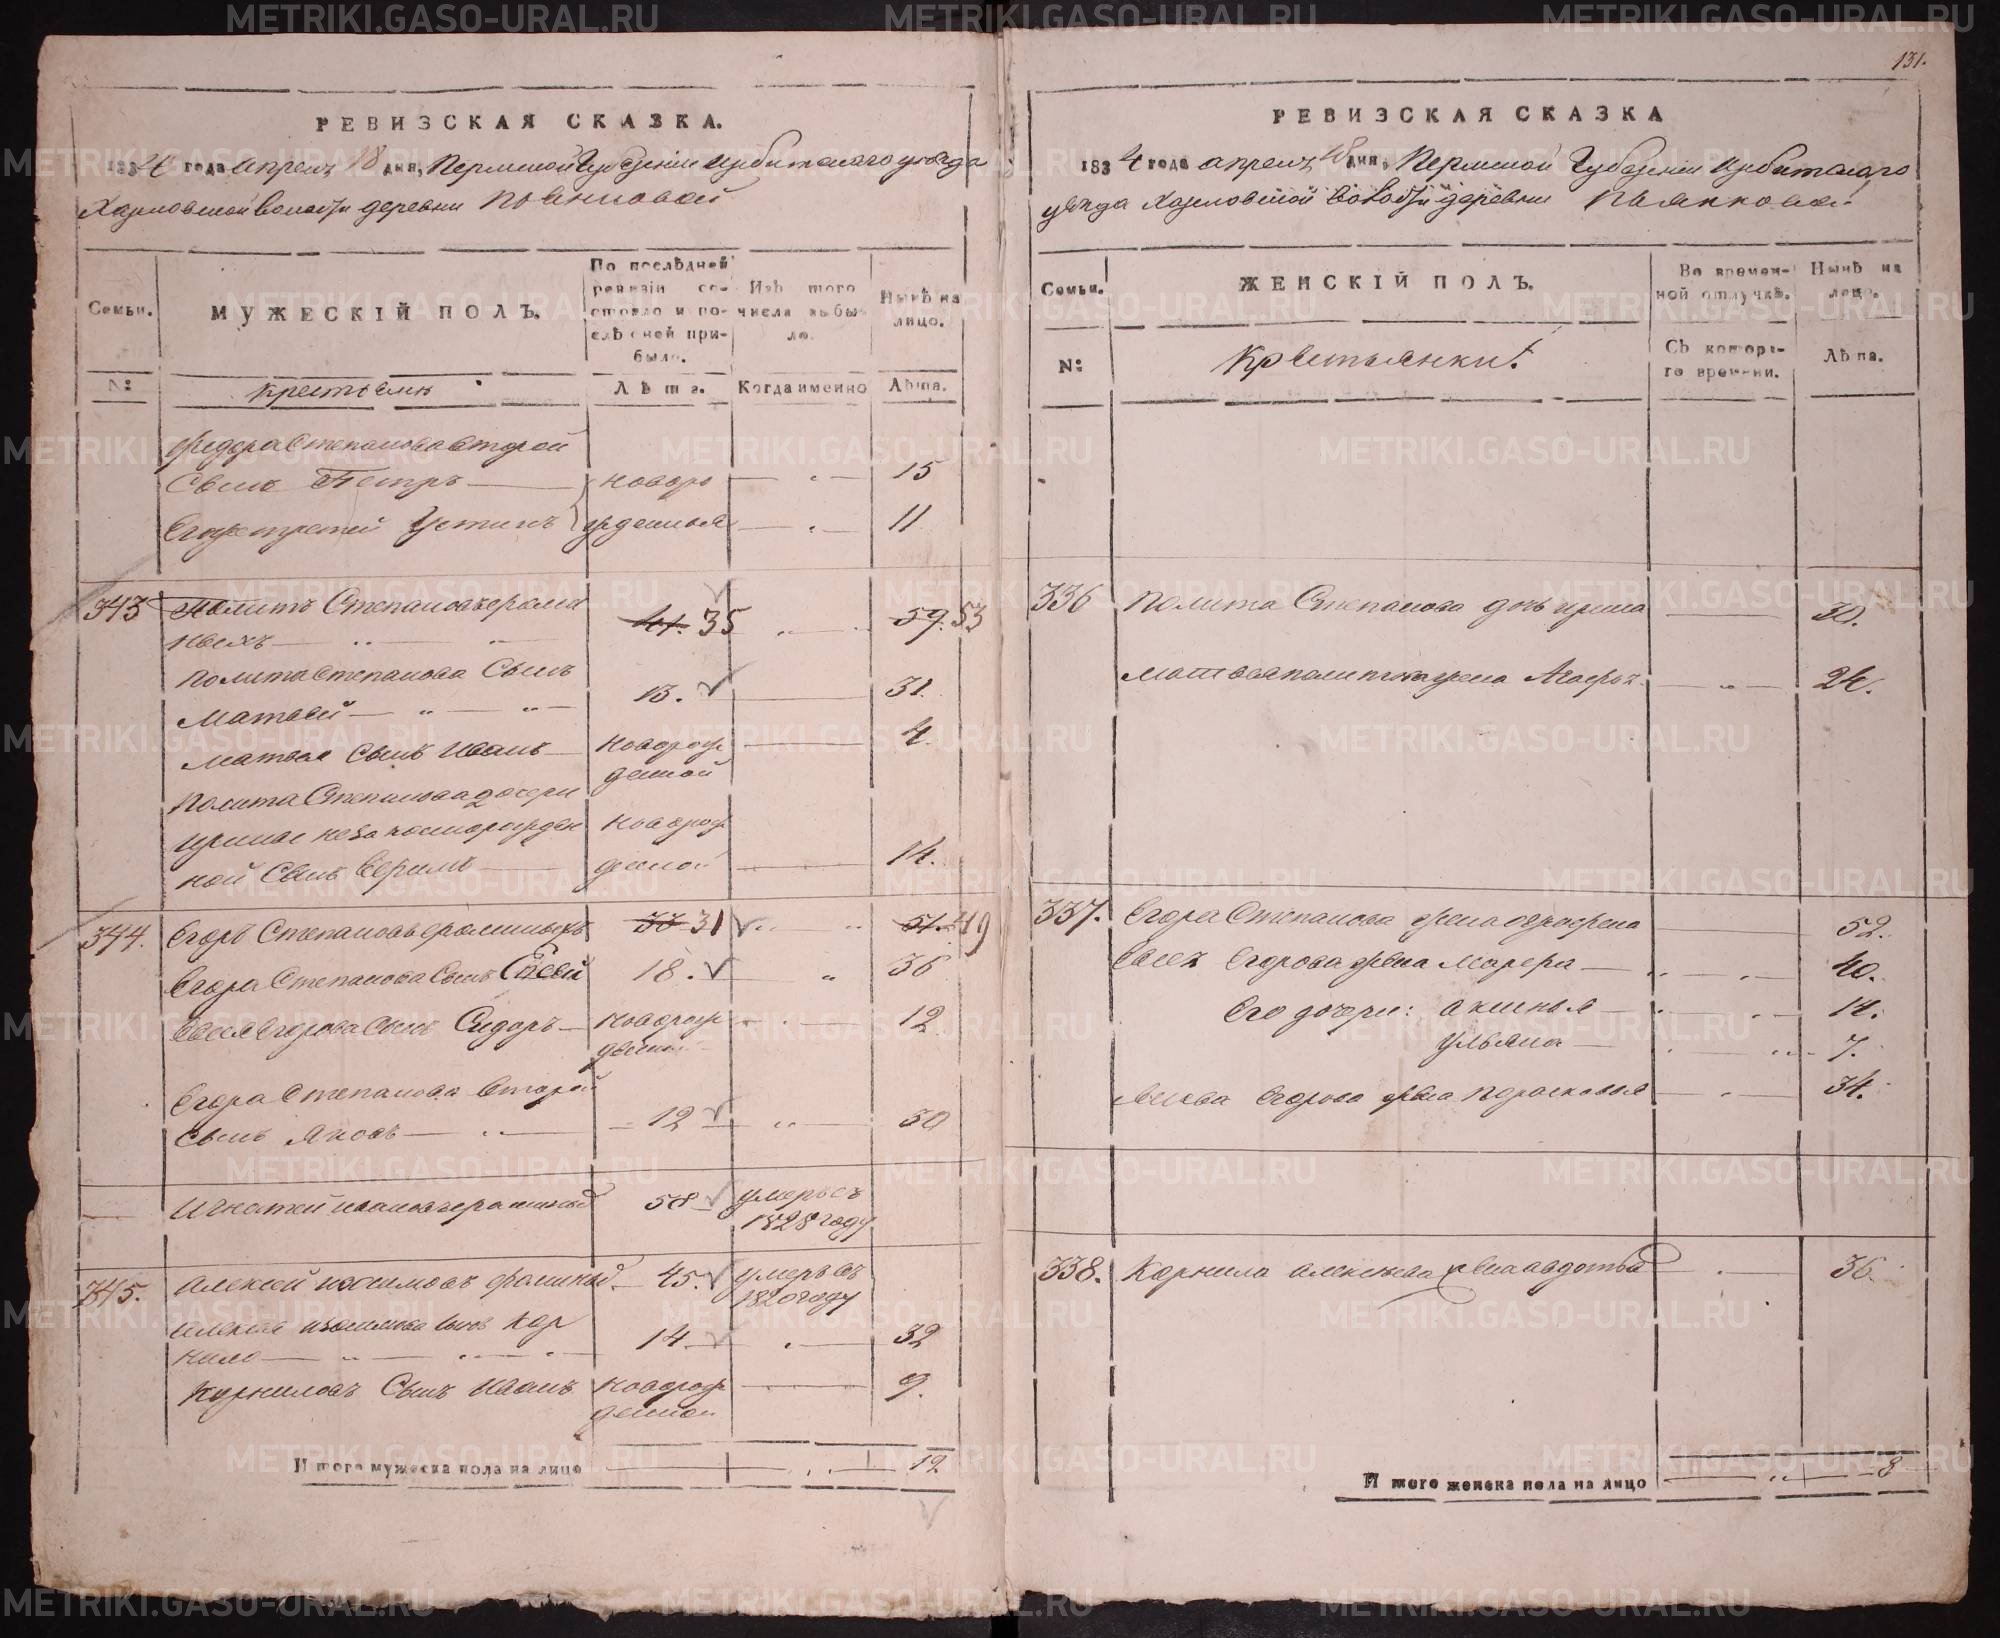 131.
РЕВИЗСКАЯ СКАЗКА.
1834 года апреля 18 дня, Пермской Губернии Ирбитского уезда
Харловской волости деревни Пьянковой
Семьи.
МУЖЕСКІЙ ПОЛЪ.
По послѣдней ревизіи состояло и послѣ оней прибыло.
Изъ того числа выбыло.
Нынѣ на лицо.
№
Крестьяне
Лѣта.
Когда именно
Лѣта.
Федора Степанова второй
Сынъ Петръ новоро 15
Его третей Устинъ жденныя 11
343 Политъ Степановъ 41. 35 59. 53
Полита Степанова Сынъ
Матвей 13. 31.
Матвея Сынъ Иванъ новорож 4.
денной
Полита Степанова дочери
новорож
ной Сынъ Ефимъ денной 14.
344. Егоръ Степановъ 33 31 51. 49
Егора Степанова Сынъ Евсей 18. 36
Евсея Егорова Сынъ Сидоръ новорож 12
денной
Егора Степанова второй
Сынъ Яковъ 12 30
Игнатей Ивановъ 58 умеръ въ
1828 году
345. Алексей 45. умеръ въ
1820 году
Алексея Сынъ Кор
нило 14 32
Корниловъ Сынъ Иванъ новорож 9.
денной
Итого мужеска пола на лицо 12
РЕВИЗСКАЯ СКАЗКА
1834 года апреля 18 дня, Пермской Губернии Ирбитскаго
уезда Харловской волости деревни Пьянковой
Семьи.
ЖЕНСКІЙ ПОЛЪ.
Во временной отлучкѣ.
Нынѣ на лицо.
№
Крестьянки
Съ котораго времени.
Лѣта.
336 Полита Степанова дочь 30.
Матвея Политова жена 24.
337. Егора Степанова жена 52.
Евсея Егорова жена 40.
Его дочери: Аксинья 14.
Ульяна 7.
Якова Егорова жена Парасковья 34.
338. Корнила Алексеева жена Авдотья 36.
Итого женска пола на лицо 8
METRIKI.GASO-URAL.RU